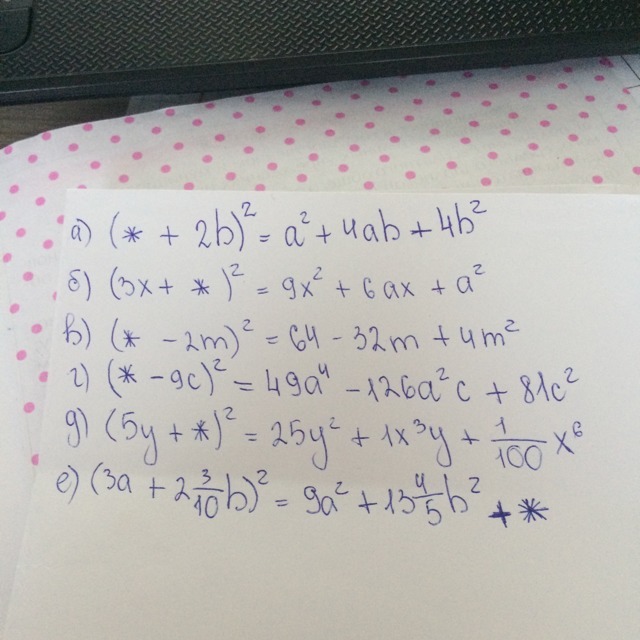 а) (* + 2b)² = a² + 4ab + 4b²
б) (3x + *)² = 9x² + 6ax + a²
в) (* - 2m)² = 64 - 32m + 4m²
г) (* - 9c)² = 49a⁴ - 126a²c + 81c²
д) (5y + *)² = 25y² + 1x³y + 1/100 x⁶
е) (3a + 2 3/10 b)² = 9a² + 13 4/5 b² + *